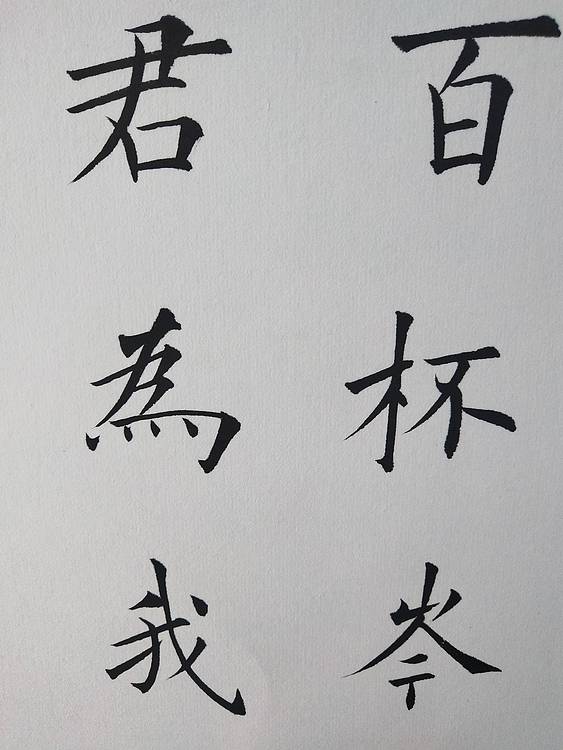 百杯岑
君為我